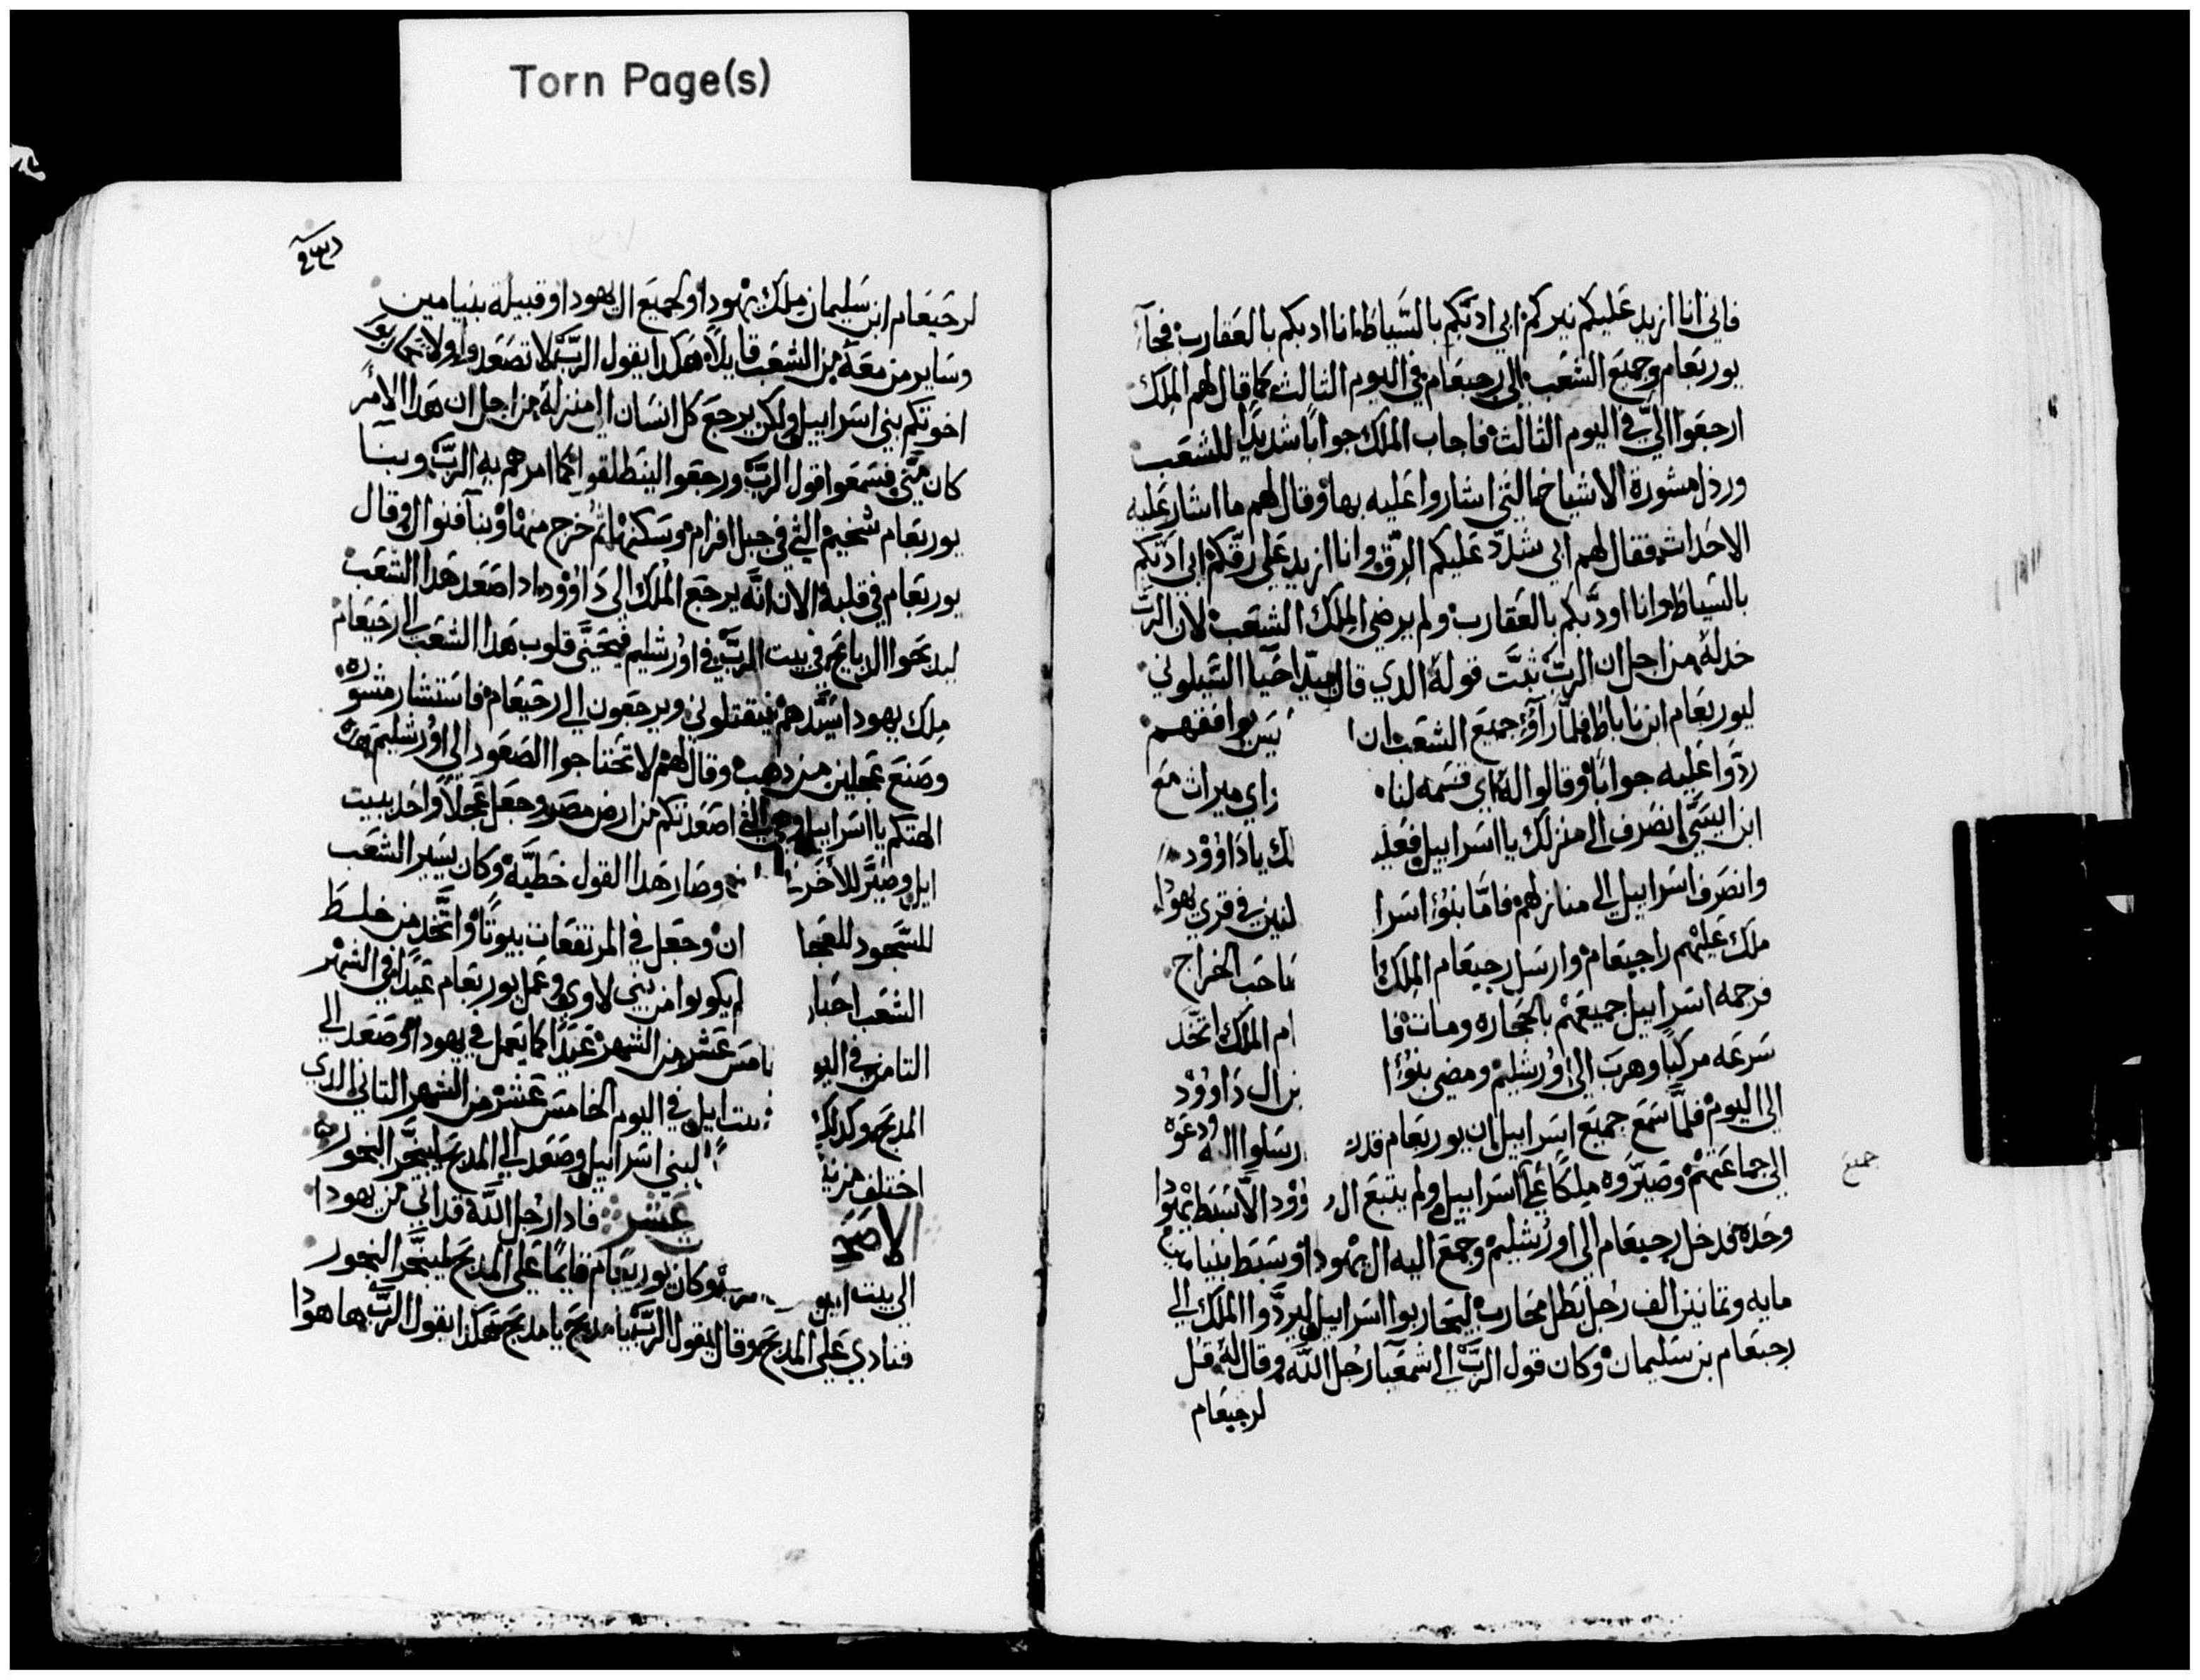 Torn Page(s)
فاني انا ازيد عليكم نيركم ابي ادبكم بالسياط انا ادبكم بالعقارب فجآء
يوربعام وجميع الشعب الى رحبعام في اليوم الثالث كما قال لهم الملك
ارجعوا اليّ في اليوم الثالث فاجاب الملك جوابًا شديدًا للشعب
ورذل مشورة الاشياخ التي اشاروا عليه بها وقال لهم ما اشار عليه
الاحداث فقال لهم ابي شدّد عليكم الرّق وانا ازيد على رقّكم ابي ادّبكم
بالسياط وانا اودّبكم بالعقارب ولم يرضي الملك الشعب لان الربّ
خدله من اجل ان الربّ ثبّت قوله الدي قال احيا الشيلوني
ليوربعام ابن ناباط فلمّا رآؤ جميع الشعب ان يوافقهم
ردّوا عليه جوابًا وقالوا له اي قسمه لنا اي ميراث مع
ابن ايسّي انصرف الى منزلك يا اسراييل فعلي لك يا داوود
وانصرف اسراييل الى منازلهم فامّا بنؤ اسرا لنين في قري يهودا
ملك عليهم راحبعام وارسل رحبعام الملك صاحب الخراج
فرجمه اسراييل جميعهم بالحجاره ومات فا ام الملك اتّخد
سرعه مركبًا وهرب الى اورشليم ومضى بنؤا من ال داوود
الى اليوم فلمّا سمع جميع اسراييل ان يوربعام قد رسلوا اله ودعوه
الى جماعتهم وصيّروه ملكًا على اسراييل ولم يتبع ال وود الا سبط يهودا
جميع
وحده فدخل رحبعام الى اورشليم وجمع اليه ال يهودا وسبط بنيامين
مايه وتمانين الف رجل بطل محارب ليحاربوا اسراييل ليردّوا الملك الى
رحبعام بن سليمان وكان قول الربّ الى اشمعيا رجل اللّه وقال له قل
لرحبعام
لرحبعام ابن سليمان ملك يهودا ولجميع ال يهودا وقبيلة بنيامين
وساير من معه من الشعب قايلاً هكدا يقول الربّ لا تصعدوا ولا تحاربو
اخوتكم بني اسراييل ولكن يرجع كل انسان الى منزله من اجل ان هدا الامر
كان منّي فسمعوا قول الربّ ورجعوا لينطلقوا كما امرهم به الربّ وبنا
يوربعام شخيم التي في جبل افرام وسكنها ثم خرج منها وبنآ فنوال وقال
يوربعام في قلبه الان انّه يرجع الملك الى داوود ادا صعد هدا الشعب
ليدبحوا الدبايح في بيت الربّ في اورشليم فيحنّي قلوب هدا الشعب الى رحبعام
ملك يهودا سيّدهم فيقتلوني ويرجعون الى رحبعام فاستشار مشوره
وصنع عجلين من دهب وقال لهم لا تحتاجوا الصعود الى اورشليم هده
الهتكم يا اسراييل التي اصعدتكم من ارض مصر وجعل عجلاً واحد ببيت
ايل وصيّر للاخر وصار هدا القول خطيّة وكان يسير الشعب
للسّجود للعجل ان وجعل في المرتفعات بيوتًا واتّخد من خلط
الشعب احبار لم يكونوا من بني لاوي وعمل يوربعام عيدًا في الشهر
التامن في اليو امس عشر من الشهر عيدًا كما يعمل في يهودا وصعد الى
المدبح وكدلك بيت ايل في اليوم الخامس عشر من الشهر التاني الدي
اختلف من لبني اسراييل وصعد الى المدبح ليبخّر البخور
الاصح عشر فادا رجل اللّه قد اتي من يهودا
الى بيت ايل وكان يوربعام قايمًا على المدبح ليبخّر البخور
فنادى على المدبح وقال يقول الربّ يا مدبح يا مدبح هكدا يقول الربّ ها هودا